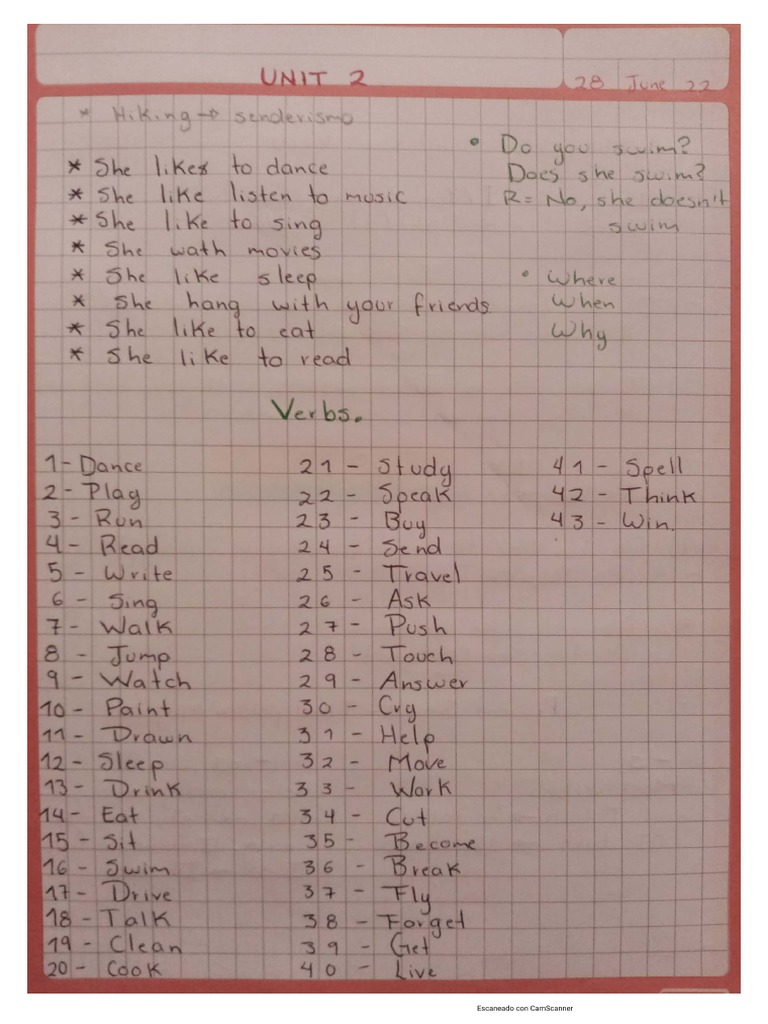 UNIT 2
28 June 22
* Hiking → senderismo
* She likes to dance
* She like listen to music
* She like to sing
* She wath movies
* She like sleep
* She hang with your friends
* She like to eat
* She like to read
• Do you swim?
Does she swim?
R= No, she doesn't
swim
• Where
When
Why
Verbs.
1- Dance
2- Play
3- Run
4- Read
5- Write
6- Sing
7- Walk
8- Jump
9- Watch
10- Paint
11- Drawn
12- Sleep
13- Drink
14- Eat
15- Sit
16- Swim
17- Drive
18- Talk
19- Clean
20- Cook
21- Study
22- Speak
23- Buy
24- Send
25- Travel
26- Ask
27- Push
28- Touch
29- Answer
30- Cry
31- Help
32- Move
33- Work
34- Cut
35- Become
36- Break
37- Fly
38- Forget
39- Get
40- Live
41- Spell
42- Think
43- Win.
Escaneado con CamScanner